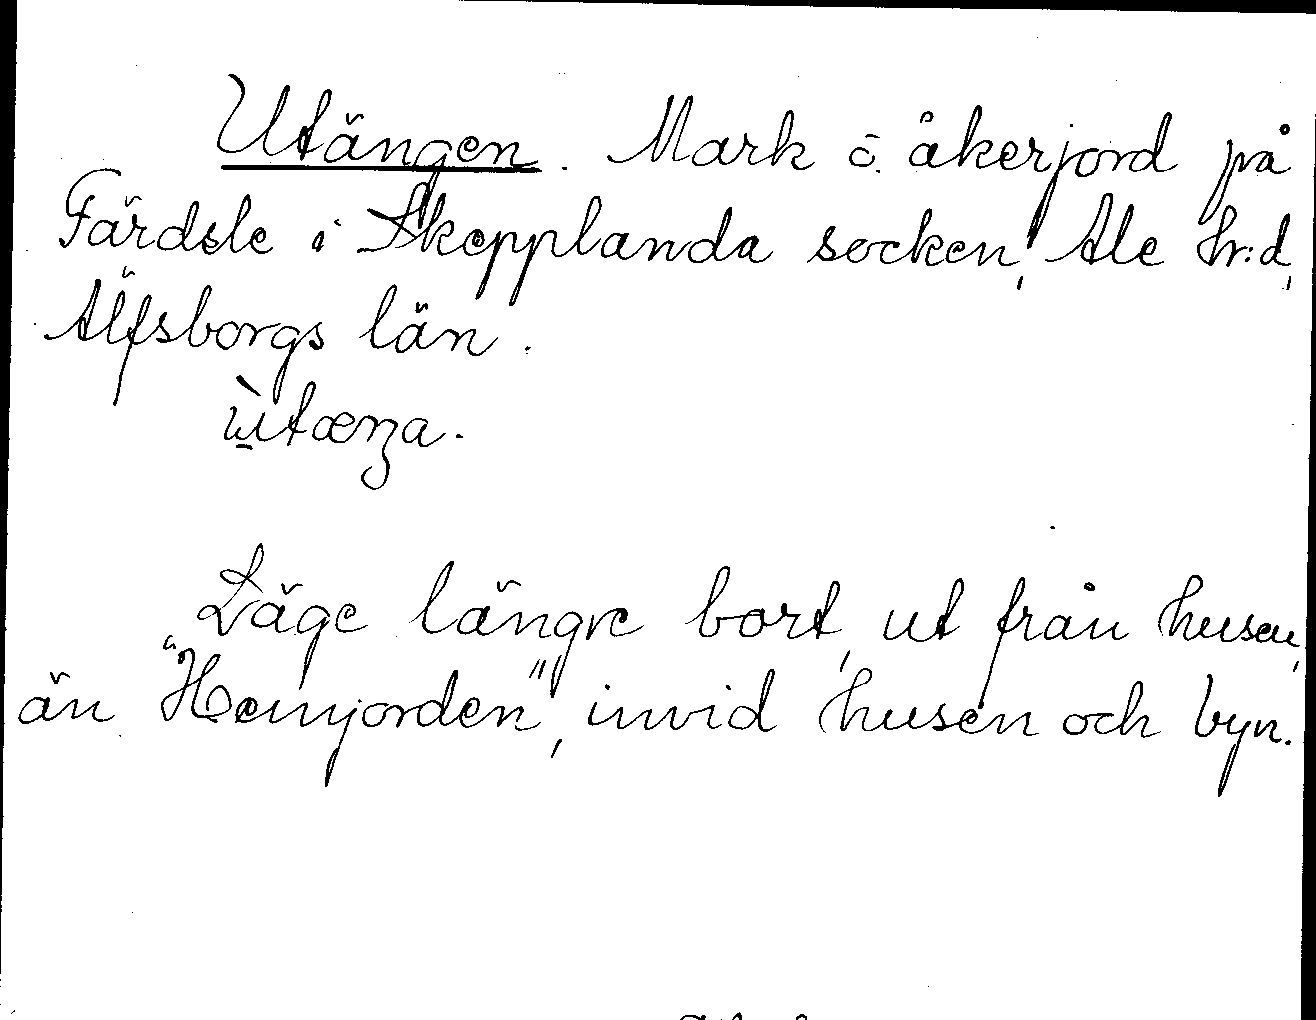 Utängen. Mark o. åkerjord på
Färdsle i Skepplanda socken, Ale hr:d,
Älfsborgs län.
ùtæŋa.
Läge längre bort, ut från husen,
än "Hemjorden", invid husen och byn.